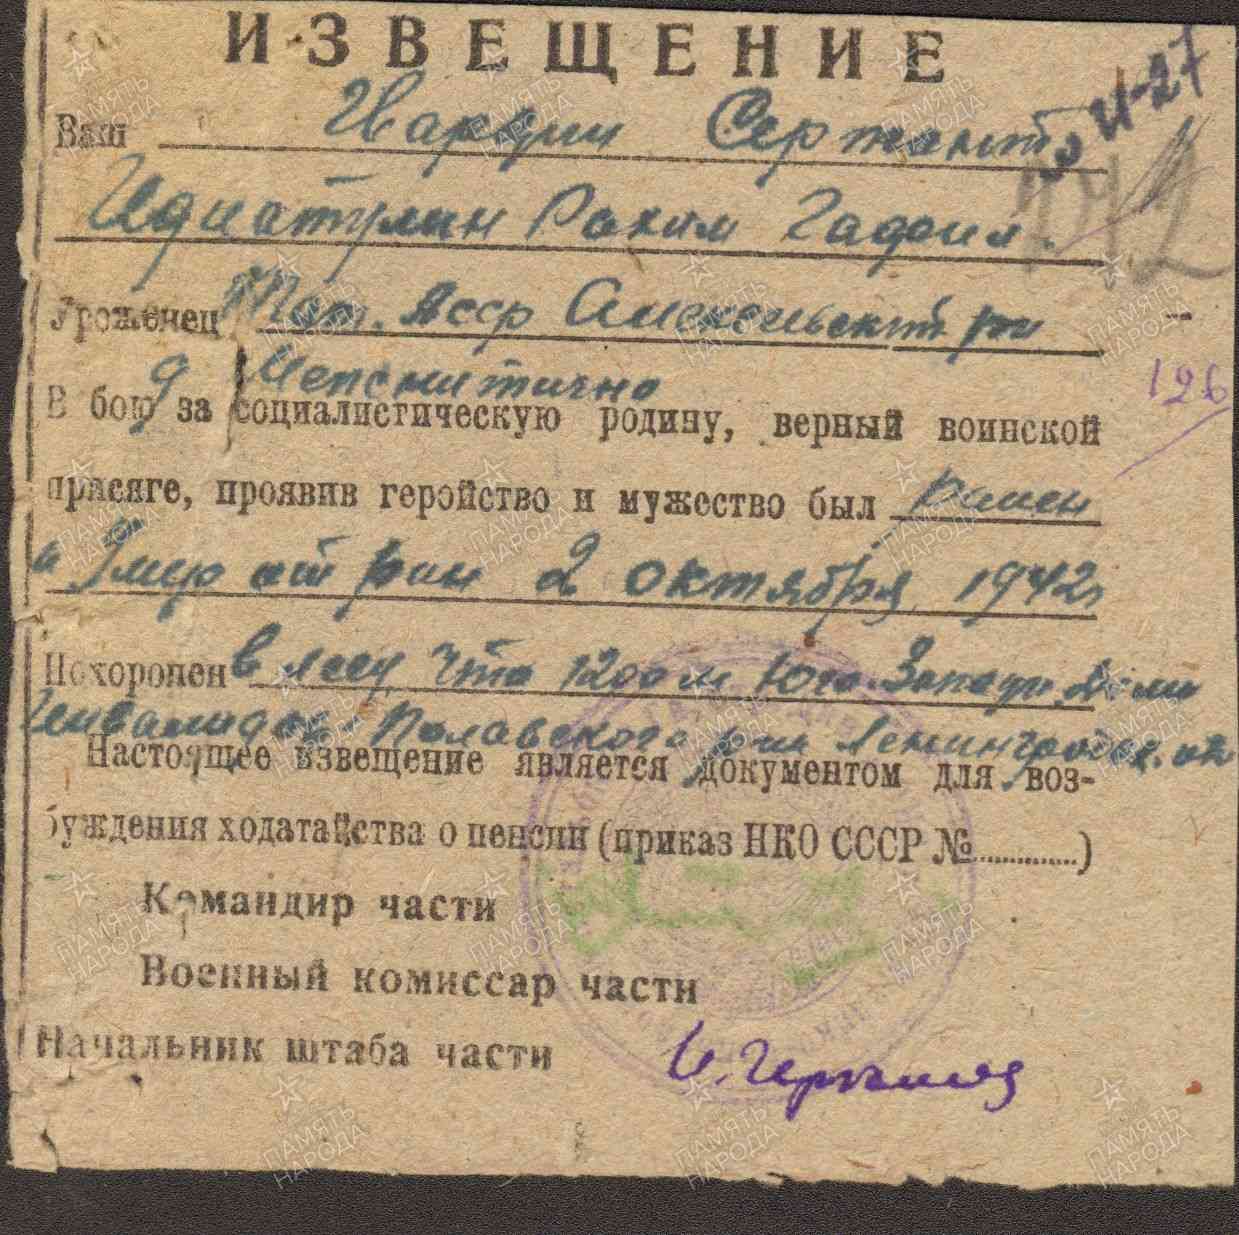 ИЗВЕЩЕНИЕ
И-27
Ваш Сержант
Рахим
Уроженец Тат. Асср
д
126
В бою за социалистическую родину, верный воинской
присяге, проявив геройство и мужество был ранен
и Умер от ран 2 октября 1942г
Похоронен в лесу, что 1200 м Юго. Запади. Дома
Инвалидов Полавского р-на Ленинградск. обл
Настоящее извещение является документом для воз-
буждения ходатайства о пенсии (приказ НКО СССР №..............)
Командир части
Военный комиссар части
Начальник штаба части
ПАМЯТЬ НАРОДА